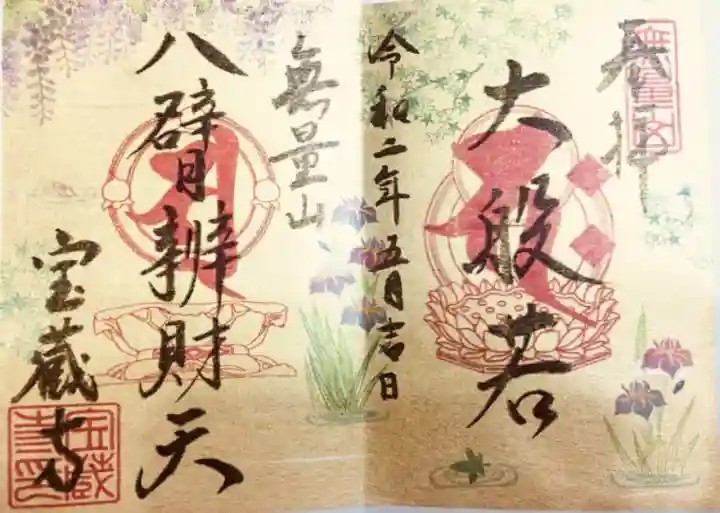 奉拝
大般若
令和二年五月吉日
無量山
八臂辨財天
宝蔵寺